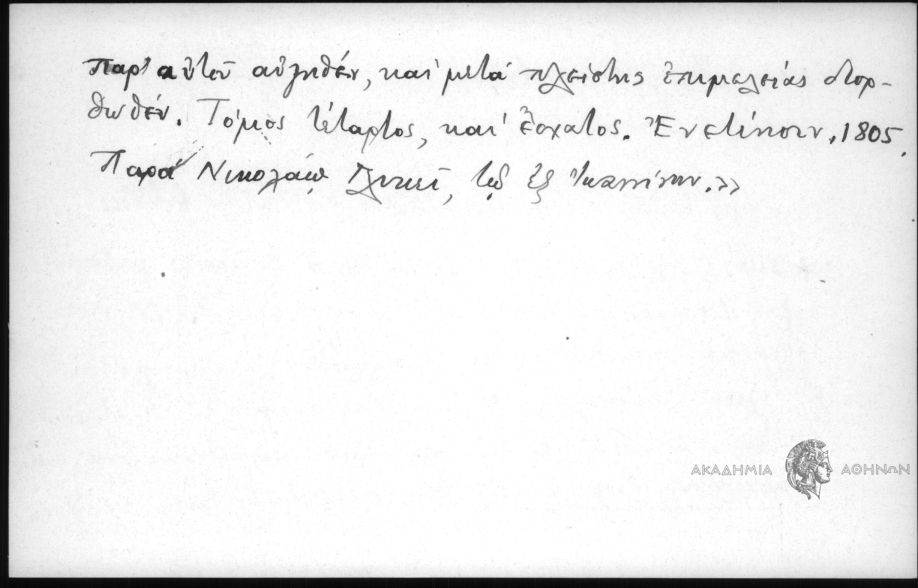 Παρ' αὐτοῦ αὐξηθέν, καὶ μετὰ πλείστης ἐπιμελείας διορ-
θωθέν. Τόμος τέταρτος, καὶ ἔσχατος. Ἐνετίησιν, 1805.
Παρὰ Νικολάῳ Γλυκεῖ, τῷ ἐξ Ἰωαννίνων.»
ΑΚΑΔΗΜΙΑ ΑΘΗΝΩΝ